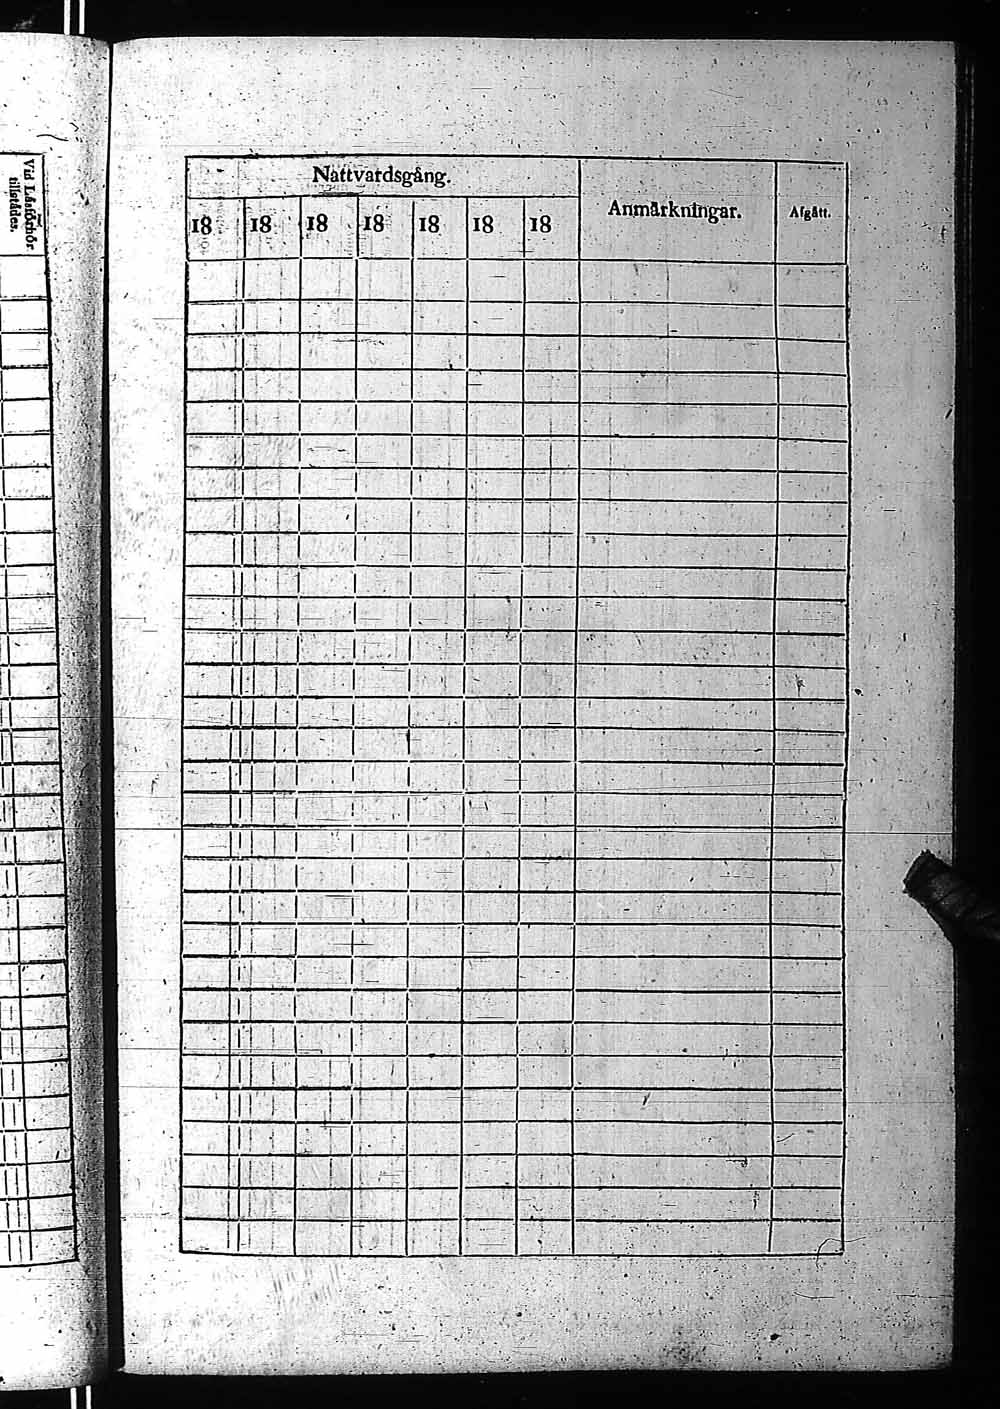 Vid Läsförhör
tillstädes.
Nattvardsgång.
18 18 18 18 18 18 18
Anmärkningar.
Afgått.